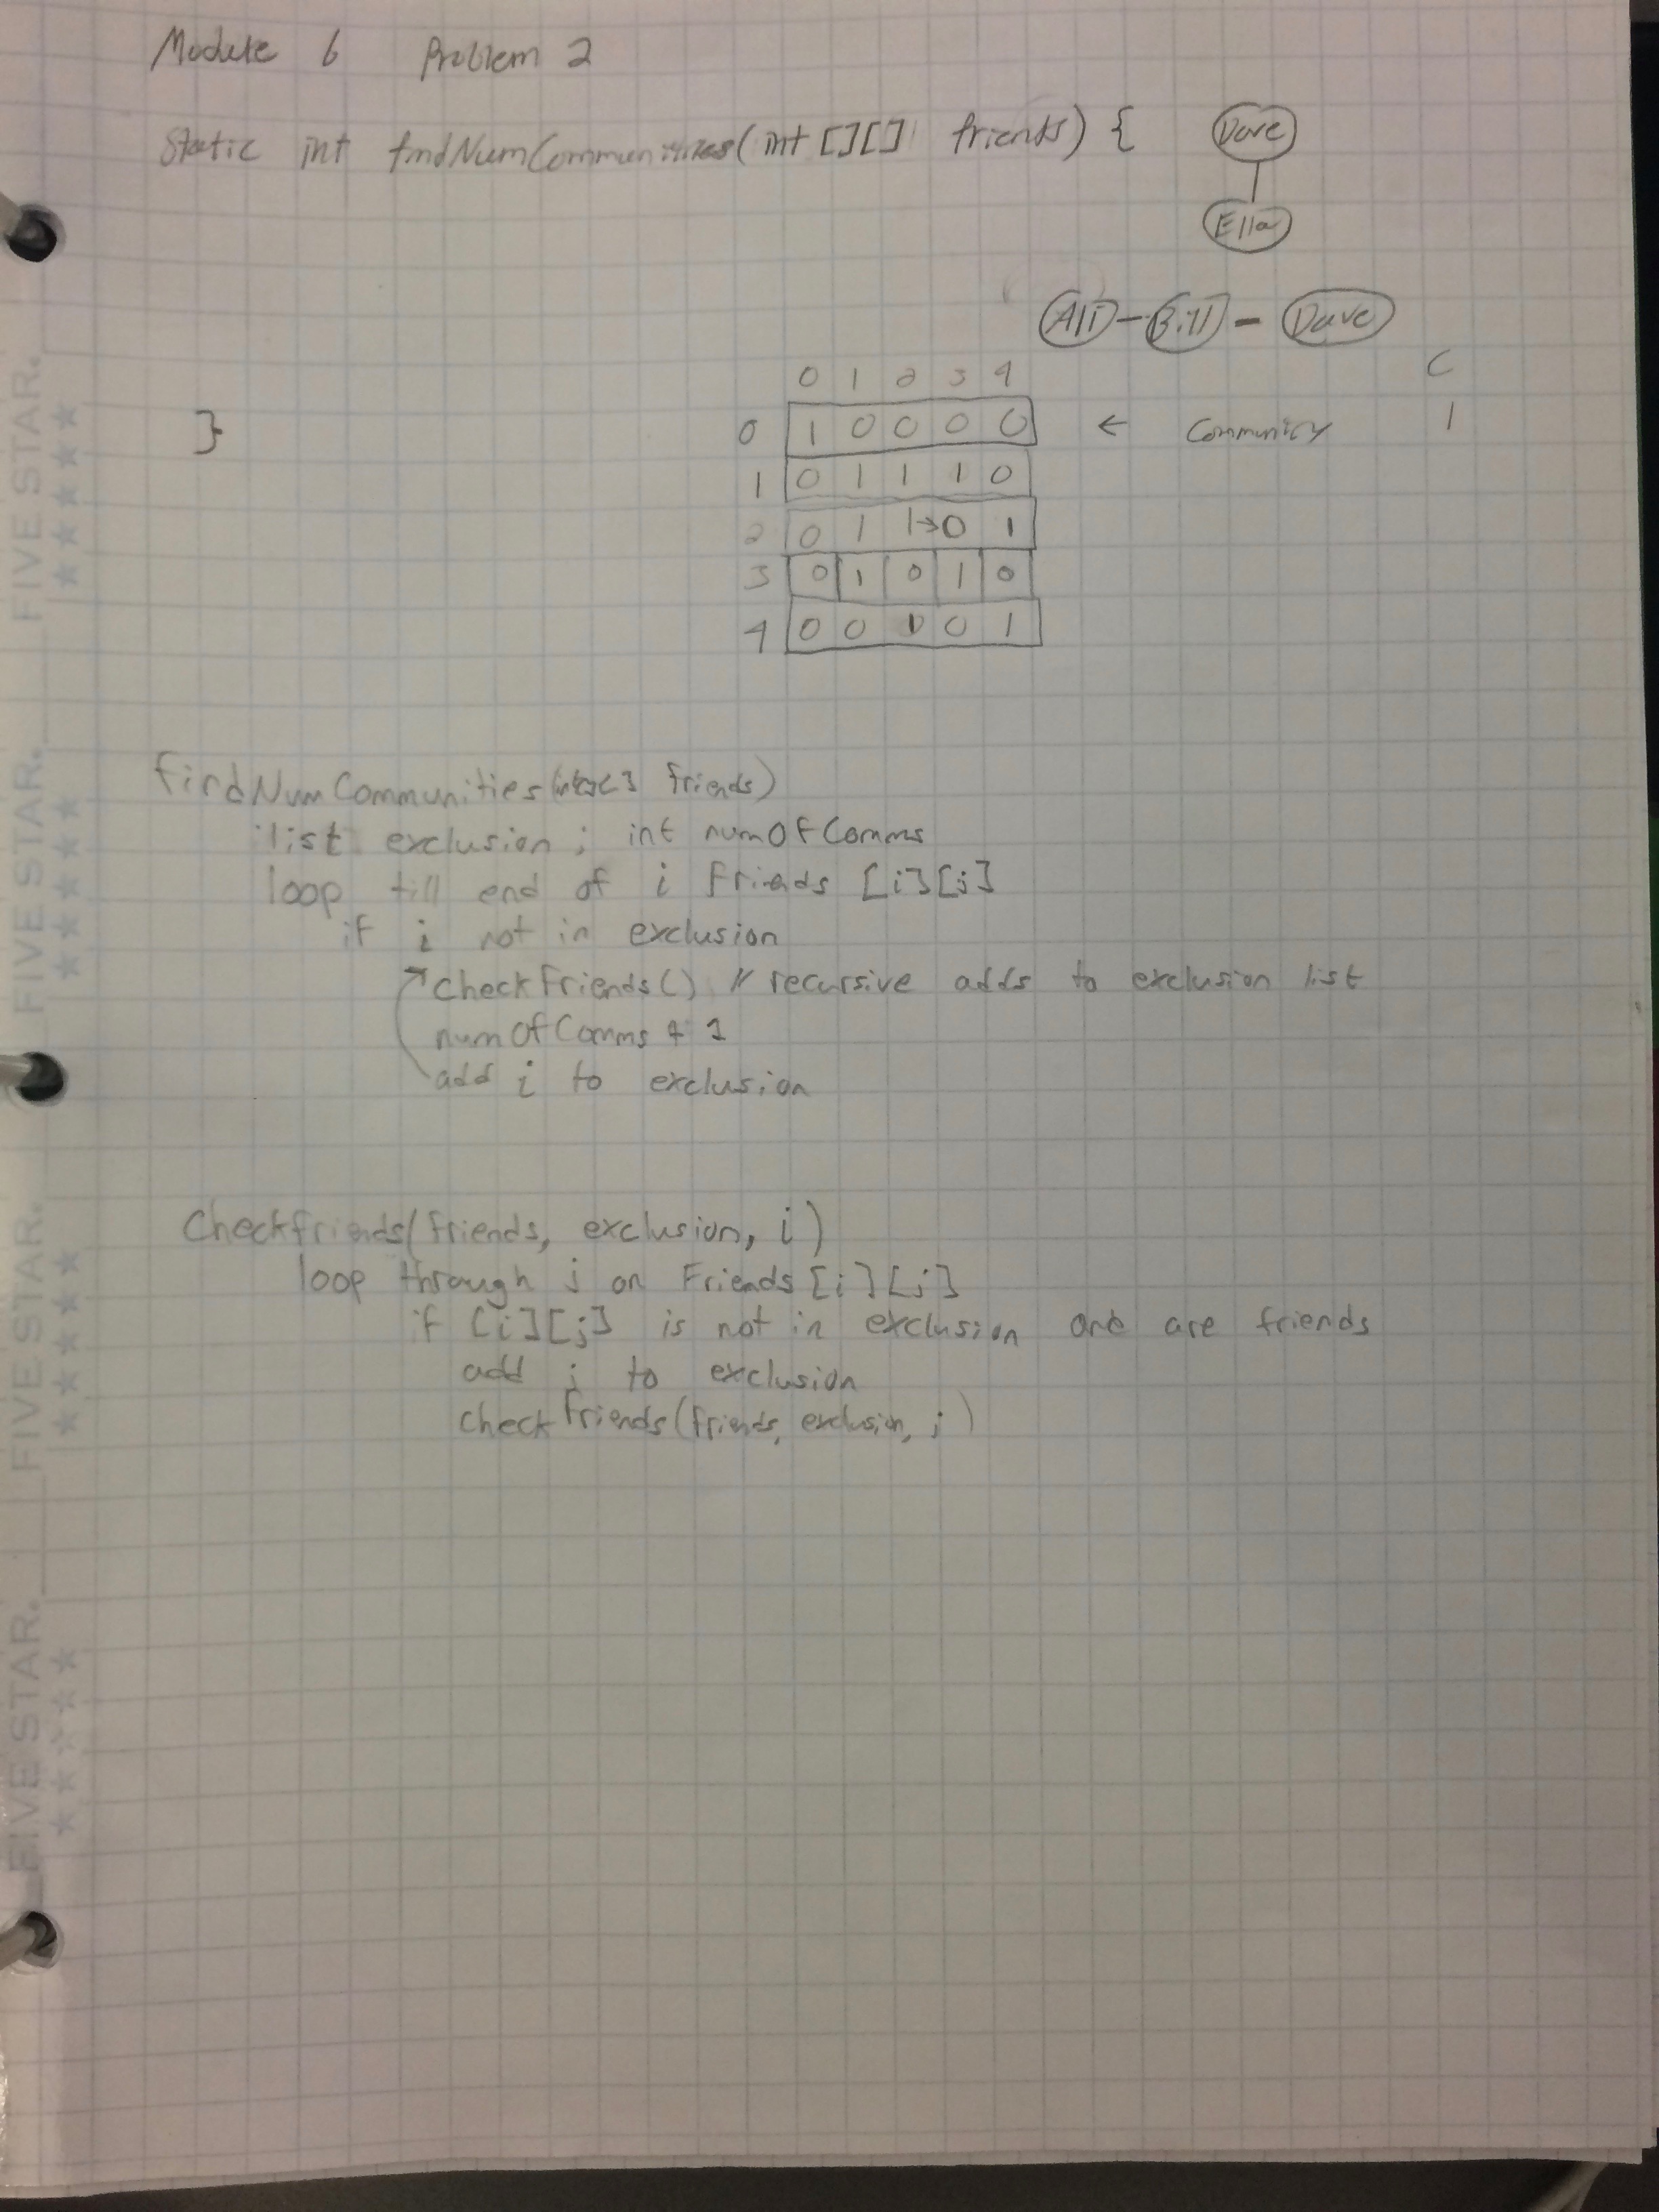 Module 6 Problem 2
Static int findNumCommunities(int [][] friends) {
Dave
Ella
Ali - Bill - Dave
0 1 2 3 4 C
} 0 1 0 0 0 0 ← Community 1
1 0 1 1 1 0
2 0 1 1→0 1
3 0 1 0 1 0
4 0 0 1 0 1
findNumCommunities( friends)
list exclusion ; int numOfComms
loop till end of i friends [i][j]
if i not in exclusion
checkFriends() // recursive adds to exclusion list
numOfComms + 1
add i to exclusion
Checkfriends(friends, exclusion, i)
loop through j on Friends [i][j]
if [i][j] is not in exclusion and are friends
add j to exclusion
check friends(friends, exclusion, j)
FIVE STAR.
FIVE STAR.
FIVE STAR.
FIVE STAR.